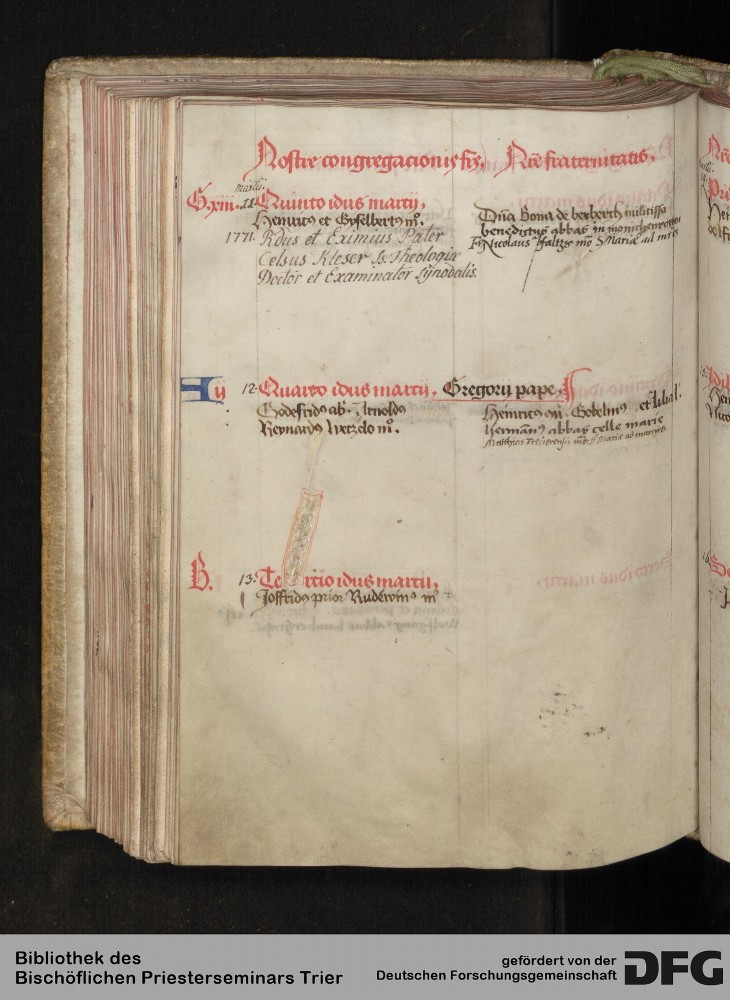 Nostre congregacionis frs, Nrē fraternitatis,
martij.
G xiii. 11. Quinto idus marcij,
Henricus et Gyselbertus mo.
1771. Rdus et Eximius Pater
Celsus Kleser Ss. Theologiæ
Doctor et Examinator Synodalis.
Dna Bona de berberch militissa
benedictus abbas in
Fr Nicolaus Pfaltze mo S Mariæ ad mrēs
A ij 12. Quarto idus marcij, Gregorij pape,
Godefridus ab. Arnoldus
Reynardus Wetzelo mo.
Heinricus m. Gobelinus et
Hermanus abbas celle marie
Matthias Treverensis mo: S Mariæ ad martyres
B. 13. Tertio idus marcij,
Joffridus prior Rudewinus mo
Bibliothek des
Bischöflichen Priesterseminars Trier
gefördert von der
Deutschen Forschungsgemeinschaft
DFG